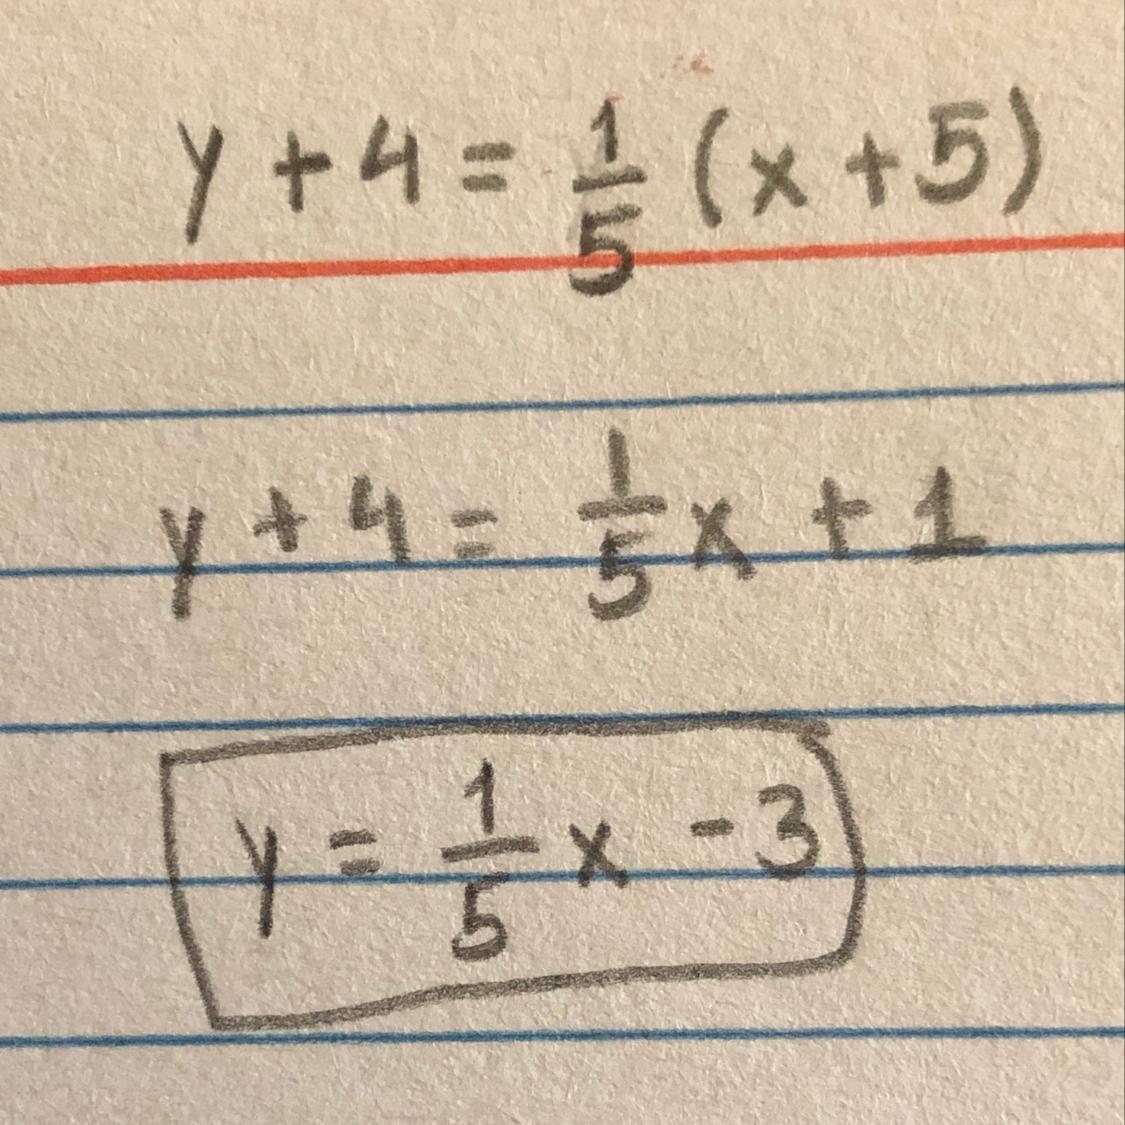 y + 4 = 1/5 (x + 5)
y + 4 = 1/5 x + 1
y = 1/5 x - 3